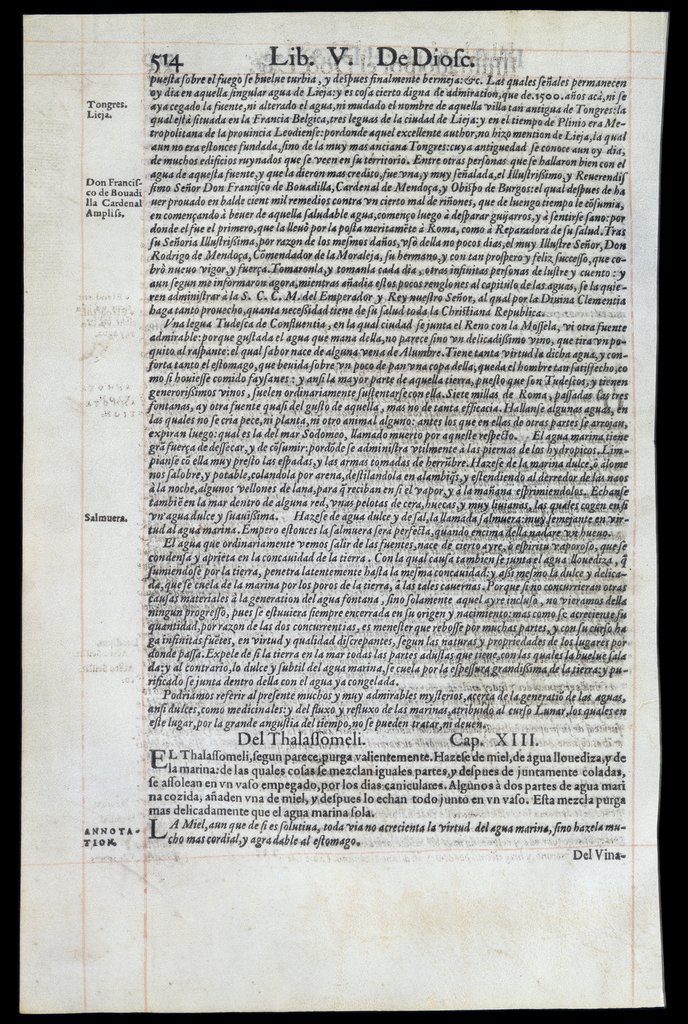 514 Lib. V. De Diosc.
puesta sobre el fuego se buelue turbia, y despues finalmente bermeja: &c. Las quales señales permanecen
oy dia en aquella singular agua de Lieja: y es cosa cierto digna de admiration, que de. 1500. años acà, ni se
Tongres.
Lieja.
aya cegado la fuente, ni alterado el agua, ni mudado el nombre de aquella villa tan antigua de Tongres: la
qual està situada en la Francia Belgica, tres leguas de la ciudad de Lieja: y en el tiempo de Plinio era Me-
tropolitana de la prouincia Leodiense: pordonde aquel excellente author, no hizo mention de Lieja, la qual
aun no era estonces fundada, sino de la muy mas anciana Tongres: cuya antiguedad se conoce aun oy dia,
de muchos edificios ruynados que se veen en su territorio. Entre otras personas que se hallaron bien con el
Don Francis-
co de Bouadi
lla Cardenal
Ampliss,
agua de aquesta fuente, y que la dieron mas credito, fue vna, y muy señalada, el Illustrissimo, y Reuerendis
simo Señor Don Francisco de Bouadilla, Cardenal de Mendoça, y Obispo de Burgos: el qual despues de ha
uer prouado en balde cient mil remedios contra vn cierto mal de riñones, que de luengo tiempo le cōsumia,
en començando à beuer de aquella saludable agua, començo luego à desparar guijarros, y à sentirse sano: por
donde el fue el primero, que la lleuò por la posta meritamēte à Roma, como à Reparadora de su salud. Tras
su Señoria Illustrissima, por razon de los mesmos daños, vsò della no pocos dias, el muy Illustre Señor, Don
Rodrigo de Mendoça, Comendador de la Moraleja, su hermano, y con tan prospero y feliz successo, que co-
brò nueuo vigor, y fuerça. Tomaronla, y tomanla cada dia, otras infinitas personas de lustre y cuento: y
aun segun me informaron agora, mientras añadia estos pocos renglones al capitulo de las aguas, se la quie-
ren administrar à la S. C. C. M. del Emperador y Rey nuestro Señor, al qual por la Diuina Clementia
haga tanto prouecho, quanta necessidad tiene de su salud toda la Christiana Republica.
Vna legua Tudesca de Confluentia, en la qual ciudad se junta el Reno con la Mossela, vi otra fuente
admirable: porque gustada el agua que mana della, no parece sino vn delicadissimo vino, que tira vn po-
quito al raspante: el qual sabor nace de alguna vena de Alumbre. Tiene tanta virtud la dicha agua, y con-
forta tanto el estomago, que beuida sobre vn poco de pan vna copa della, queda el hombre tan satisfecho, co
mo si houiesse comido faysanes: y ansi la mayor parte de aquella tierra, puesto que son Tudescos, y tienen
generorissimos vinos, suelen ordinariamente sustentarse con ella. Siete millas de Roma, passadas las tres
fontanas, ay otra fuente quasi del gusto de aquella, mas no de tanta efficacia. Hallanse algunas aguas, en
las quales no se cria pece, ni planta, ni otro animal alguno: antes los que en ellas de otras partes se arrojan,
expiran luego: qual es la del mar Sodomeo, llamado muerto por aqueste respecto. El agua marina tiene
grā fuerça de dessecar, y de cōsumir: pordōde se administra vtilmente à las piernas de los hydropicos. Lim-
pianse cō ella muy presto las espadas, y las armas tomadas de herrūbre. Hazese de la marina dulce, ò alome
nos salobre, y potable, colandola por arena, destilandola en alambiqs, y estendiendo al derredor de las naos
à la noche, algunos vellones de lana, para q̃ reciban en si el vapor, y à la mañana esprimiendolos. Echanse
tambiē en la mar dentro de alguna red, vnas pelotas de cera, huecas, y muy liuianas, las quales cogen en si
Salmuera.
vn' agua dulce y suauissima. Hazese de agua dulce y de sal, la llamada salmuera: muy semejante en vir-
tud al agua marina. Empero estonces la salmuera serà perfecta, quando encima della nadare vn hueuo.
El agua que ordinariamente vemos salir de las fuentes, nace de cierto ayre, ò espiritu vaporoso, que se
condensa y aprieta en la concauidad de la tierra. Con la qual causa tambien se junta el agua llouediza, q̃
sumiendose por la tierra, penetra latentemente hasta la mesma concauidad: y asi mesmo la dulce y delica-
da, que se cuela de la marina por los poros de la tierra, à las tales cauernas. Porque si no concurrieran otras
causas materiales à la generation del agua fontana, sino solamente aquel ayre incluso, no vieramos della
ningun progresso, pues se estuuiera siempre encerrada en su origen y nacimiento: mas como se acreciente su
quantidad, por razon de las dos concurrentias, es menester que rebosse por muchas partes, y con su curso ha
ga infinitas fuētes, en virtud y qualidad discrepantes, segun las naturas y propriedades de los lugares por
donde passa. Expele de si la tierra en la mar todas las partes adustas que tiene, con las quales la buelue sala
da: y al contrario, lo dulce y subtil del agua marina, se cuela por la espessura grandissima de la tierra: y pu-
rificado se junta dentro della con el agua ya congelada.
Podriamos referir al presente muchos y muy admirables mysterios, acerca de la generatiō de las aguas,
ansi dulces, como medicinales: y del fluxo y refluxo de las marinas, atribuido al curso Lunar, los quales en
este lugar, por la grande angustia del tiempo, no se pueden tratar, ni deuen.
Del Thalassomeli. Cap. XIII.
EL Thalassomeli, segun parece, purga valientemente. Hazese de miel, de agua llouediza, y de
la marina: de las quales cosas se mezclan iguales partes, y despues de juntamente coladas,
se assolean en vn vaso empegado, por los dias caniculares. Algunos à dos partes de agua mari
na cozida, añaden vna de miel, y despues lo echan todo junto en vn vaso. Esta mezcla purga
mas delicadamente que el agua marina sola.
ANNOTA-
TION.
LA Miel, aun que de si es solutiua, toda via no acrecienta la virtud del agua marina, sino hazela mu-
cho mas cordial, y agradable al estomago.
Del Vina-